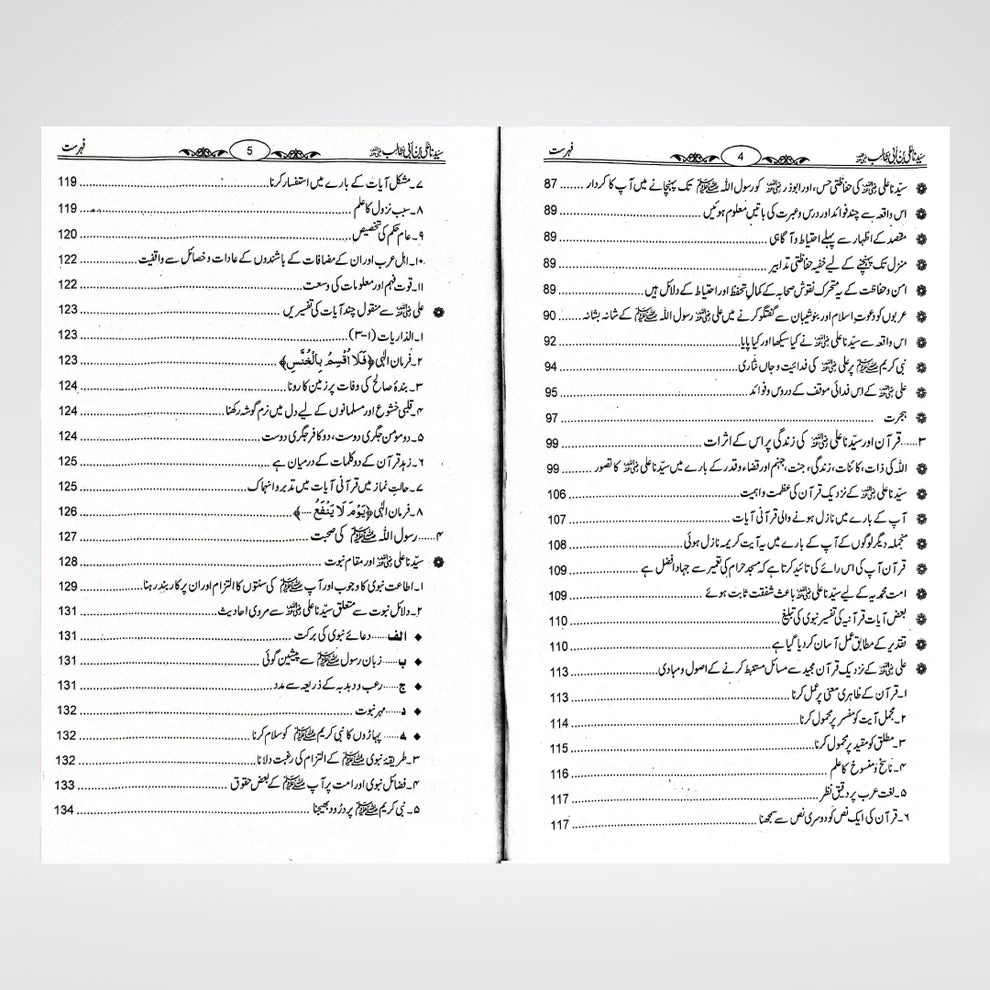 سیدنا علی بن ابی طالب رضی اللہ عنہ 4 فہرست
سیّدنا علی رضی اللہ عنہ کی حفاظتی حس، اور ابوذر رضی اللہ عنہ کو رسول اللہ ﷺ تک پہنچانے میں آپ کا کردار ...... 87
اس واقعہ سے چند فوائد اور درس و عبرت کی باتیں معلوم ہوئیں ...... 89
مقصد کے اظہار سے پہلے احتیاط و آگاہی ...... 89
منزل تک پہنچنے کے لیے خفیہ حفاظتی تدابیر ...... 89
امن و حفاظت کے یہ متحرک نقوش صحابہ کے کمالِ تحفظ اور احتیاط کے دلائل ہیں ...... 89
عربوں کو دعوتِ اسلام اور بنو شیبان سے گفتگو کرنے میں علی رضی اللہ عنہ رسول اللہ ﷺ کے شانہ بشانہ ...... 90
اس واقعہ سے سیّدنا علی رضی اللہ عنہ نے کیا سیکھا اور کیا پایا ...... 92
نبی کریم ﷺ پر علی رضی اللہ عنہ کی فدائیت و جاں نثاری ...... 94
علی رضی اللہ عنہ کے اس فدائی موقف کے دروس و فوائد ...... 95
ہجرت ...... 97
۳...... قرآن اور سیّدنا علی رضی اللہ عنہ کی زندگی پر اس کے اثرات ...... 99
اللہ کی ذات، کائنات، زندگی، جنت، جہنم اور قضاء و قدر کے بارے میں سیّدنا علی رضی اللہ عنہ کا تصور ...... 99
سیّدنا علی رضی اللہ عنہ کے نزدیک قرآن کی عظمت و اہمیت ...... 106
آپ کے بارے میں نازل ہونے والی قرآنی آیات ...... 107
منجملہ دیگر لوگوں کے آپ کے بارے میں یہ آیت کریمہ نازل ہوئی ...... 108
قرآن آپ کی اس رائے کی تائید کرتا ہے کہ مسجد حرام کی تعمیر سے جہاد افضل ہے ...... 109
امت محمدیہ کے لیے سیّدنا علی رضی اللہ عنہ باعث شفقت ثابت ہوئے ...... 109
بعض آیات قرآنیہ کی تفسیر نبوی کی تبلیغ ...... 110
تقدیر کے مطابق عمل آسان کر دیا گیا ہے ...... 110
علی رضی اللہ عنہ کے نزدیک قرآن مجید سے مسائل مستنبط کرنے کے اصول و مبادی ...... 113
۱۔ قرآن کے ظاہری معنی پر عمل کرنا ...... 113
۲۔ مجمل آیت کو مفسر پر محمول کرنا ...... 114
۳۔ مطلق کو مقید پر محمول کرنا ...... 115
۴۔ ناسخ و منسوخ کا علم ...... 116
۵۔ لغت عرب پر دقیق نظر ...... 117
۶۔ قرآن کی ایک نص کو دوسری نص سے سمجھنا ...... 117
سیدنا علی بن ابی طالب رضی اللہ عنہ 5 فہرست
۷۔ مشکل آیات کے بارے میں استفسار کرنا ...... 119
۸۔ سبب نزول کا علم ...... 119
۹۔ عام حکم کی تخصیص ...... 120
۱۰۔ اہل عرب اور ان کے مضافات کے باشندوں کے عادات و خصائل سے واقفیت ...... 122
۱۱۔ قوت فہم اور معلومات کی وسعت ...... 122
علی رضی اللہ عنہ سے منقول چند آیات کی تفسیریں ...... 123
۱۔ الذاریات (۱-۳) ...... 123
۲۔ فرمان الٰہی ﴿فَلَا أُقْسِمُ بِالْخُنَّسِ﴾ ...... 123
۳۔ بندۂ صالح کی وفات پر زمین کا رونا ...... 124
۴۔ قلبی خشوع اور مسلمانوں کے لیے دل میں نرم گوشہ رکھنا ...... 124
۵۔ دو مومن جگری دوست، دو کافر جگری دوست ...... 124
۶۔ زہد قرآن کے دو کلمات کے درمیان ہے ...... 125
۷۔ حالت نماز میں قرآنی آیات میں تدبر و انہماک ...... 125
۸۔ فرمان الٰہی ﴿يَوْمَ لَا يَنْفَعُ ....﴾ ...... 126
۴...... رسول اللہ ﷺ کی صحبت ...... 127
سیّدنا علی رضی اللہ عنہ اور مقام نبوت ...... 128
۱۔ اطاعت نبوی کا وجوب اور آپ ﷺ کی سنتوں کا التزام اور ان پر کاربند رہنا ...... 129
۲۔ دلائل نبوت سے متعلق سیّدنا علی رضی اللہ عنہ سے مروی احادیث ...... 131
الف...... دعائے نبوی کی برکت ...... 131
ب...... زبان رسول ﷺ سے پیشین گوئی ...... 131
ج...... رعب و دبدبہ کے ذریعہ سے مدد ...... 131
د...... مہر نبوت ...... 132
ہ...... پہاڑوں کا نبی کریم ﷺ کو سلام کرنا ...... 132
۳۔ طریقۂ نبوی ﷺ کے التزام کی رغبت دلانا ...... 132
۴۔ فضائل نبوی اور امت پر آپ ﷺ کے بعض حقوق ...... 133
۵۔ نبی کریم ﷺ پر درُود بھیجنا ...... 134